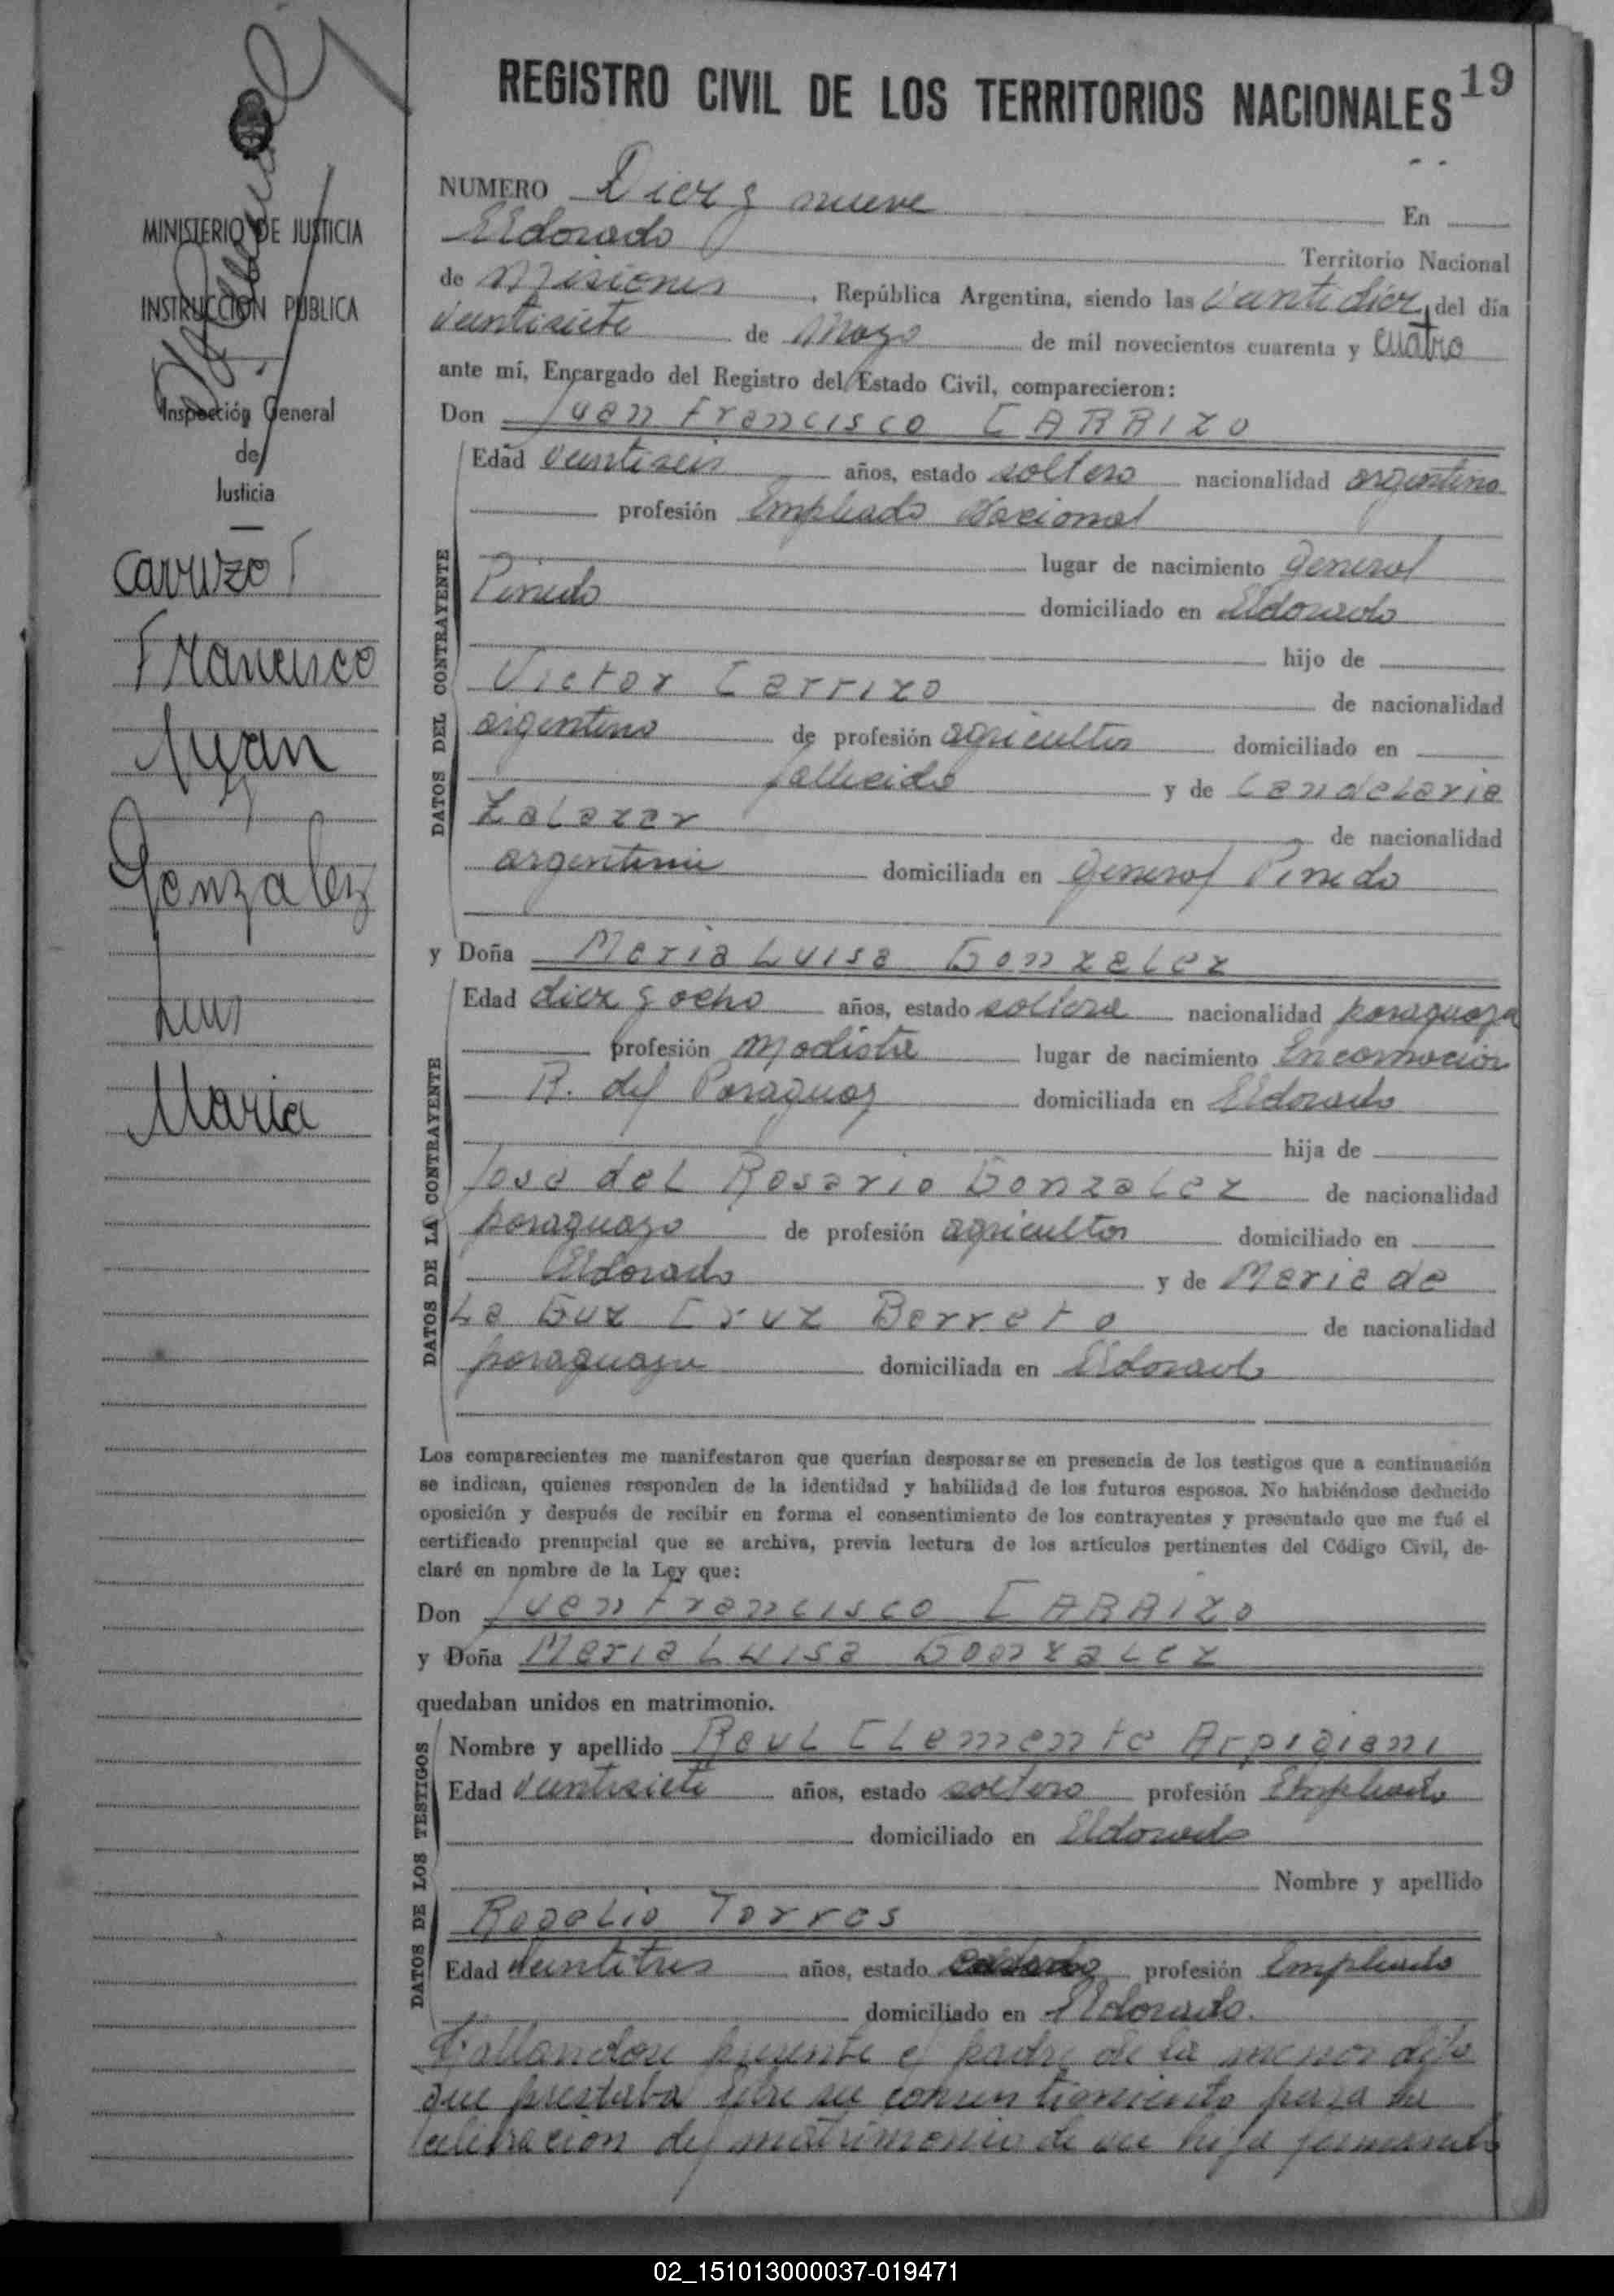 REGISTRO CIVIL DE LOS TERRITORIOS NACIONALES 19
MINISTERIO DE JUSTICIA
INSTRUCCIÓN PUBLICA
Inspección General
de
Justicia
Carrizo
Francisco
Juan
Gonzalez
Luis
Maria
NUMERO Diez y nueve En
Eldorado Territorio Nacional
de Misiones, República Argentina, siendo las del día
veintisiete de Mayo de mil novecientos cuarenta y cuatro
ante mí, Encargado del Registro del Estado Civil, comparecieron:
Don Juan Francisco CARRIZO
DATOS DEL CONTRAYENTE
Edad veintiseis años, estado soltero nacionalidad argentino
profesión Empleado Nacional
lugar de nacimiento General
Pinedo domiciliado en Eldorado
hijo de
Victor Carrizo de nacionalidad
argentino de profesión agricultor domiciliado en
fallecido y de Candelaria
Zalazar de nacionalidad
argentina domiciliada en General Pinedo
y Doña Maria Luisa Gonzalez
DATOS DE LA CONTRAYENTE
Edad diez y ocho años, estado soltera nacionalidad paraguaya
profesión Modista lugar de nacimiento Encarnacion
R. del Paraguay domiciliada en Eldorado
hija de
José del Rosario Gonzalez de nacionalidad
paraguayo de profesión agricultor domiciliado en
Eldorado y de Maria de
La Cruz Barreto de nacionalidad
paraguaya domiciliada en Eldorado
Los comparecientes me manifestaron que querían desposarse en presencia de los testigos que a continuación
se indican, quienes responden de la identidad y habilidad de los futuros esposos. No habiéndose deducido
oposición y después de recibir en forma el consentimiento de los contrayentes y presentado que me fué el
certificado prenupcial que se archiva, previa lectura de los artículos pertinentes del Código Civil, de-
claré en nombre de la Ley que:
Don Juan Francisco CARRIZO
y Doña Maria Luisa Gonzalez
quedaban unidos en matrimonio.
DATOS DE LOS TESTIGOS
Nombre y apellido Raul Clemente Arpigiani
Edad veintisiete años, estado soltero profesión Empleado
domiciliado en Eldorado
Nombre y apellido
Rogelio Torres
Edad veintitres años, estado profesión Empleado
domiciliado en Eldorado.
Hallandose presente el padre de la menor dijo
que prestaba su consentimiento para la
celebracion del matrimonio de su hija
02_151013000037-019471